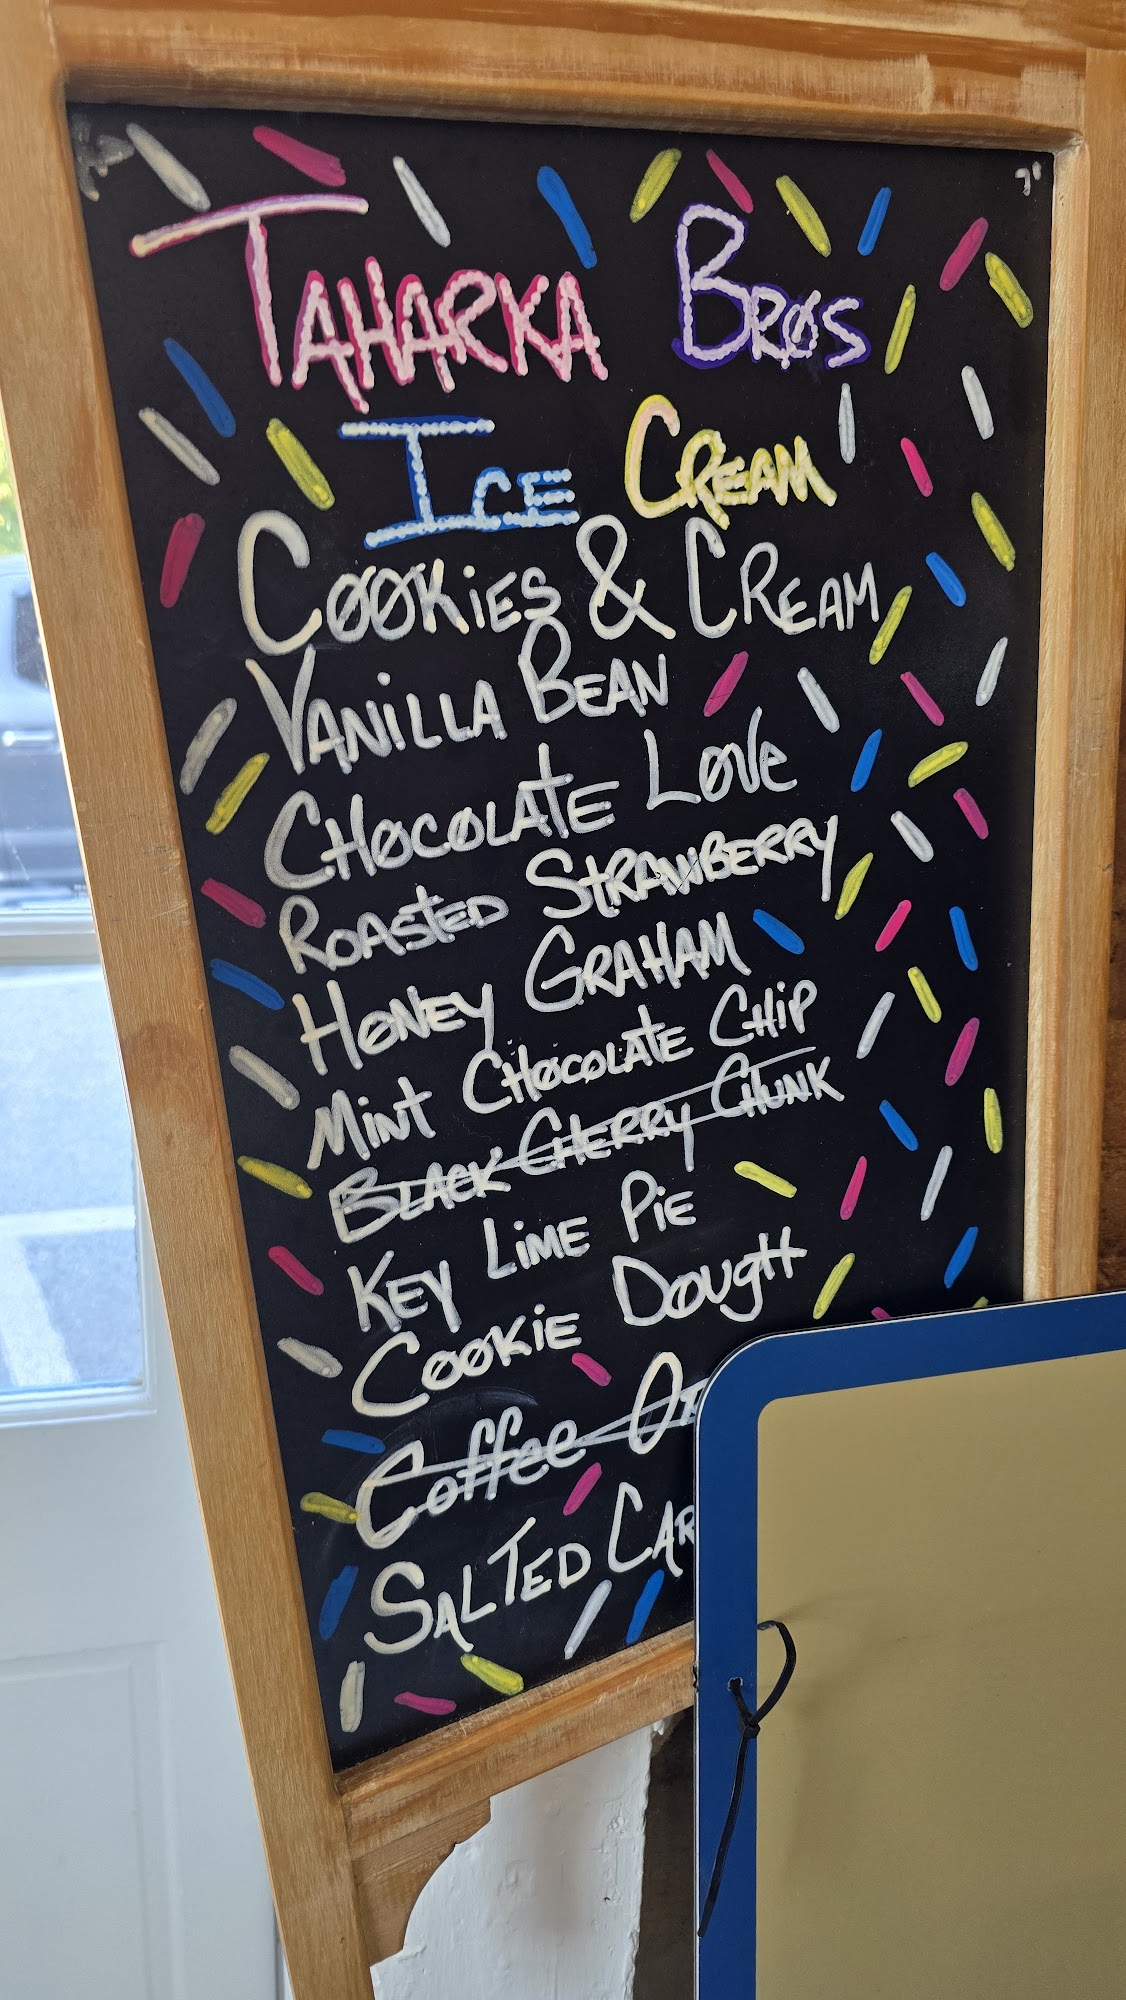 TAHARKA BROS
ICE CREAM
COOKIES & CREAM
VANILLA BEAN
CHOCOLATE LOVE
ROASTED STRAWBERRY
HONEY GRAHAM
MINT CHOCOLATE CHIP
BLACK CHERRY CHUNK
KEY LIME PIE
COOKIE DOUGH
Coffee
SALTED CAR